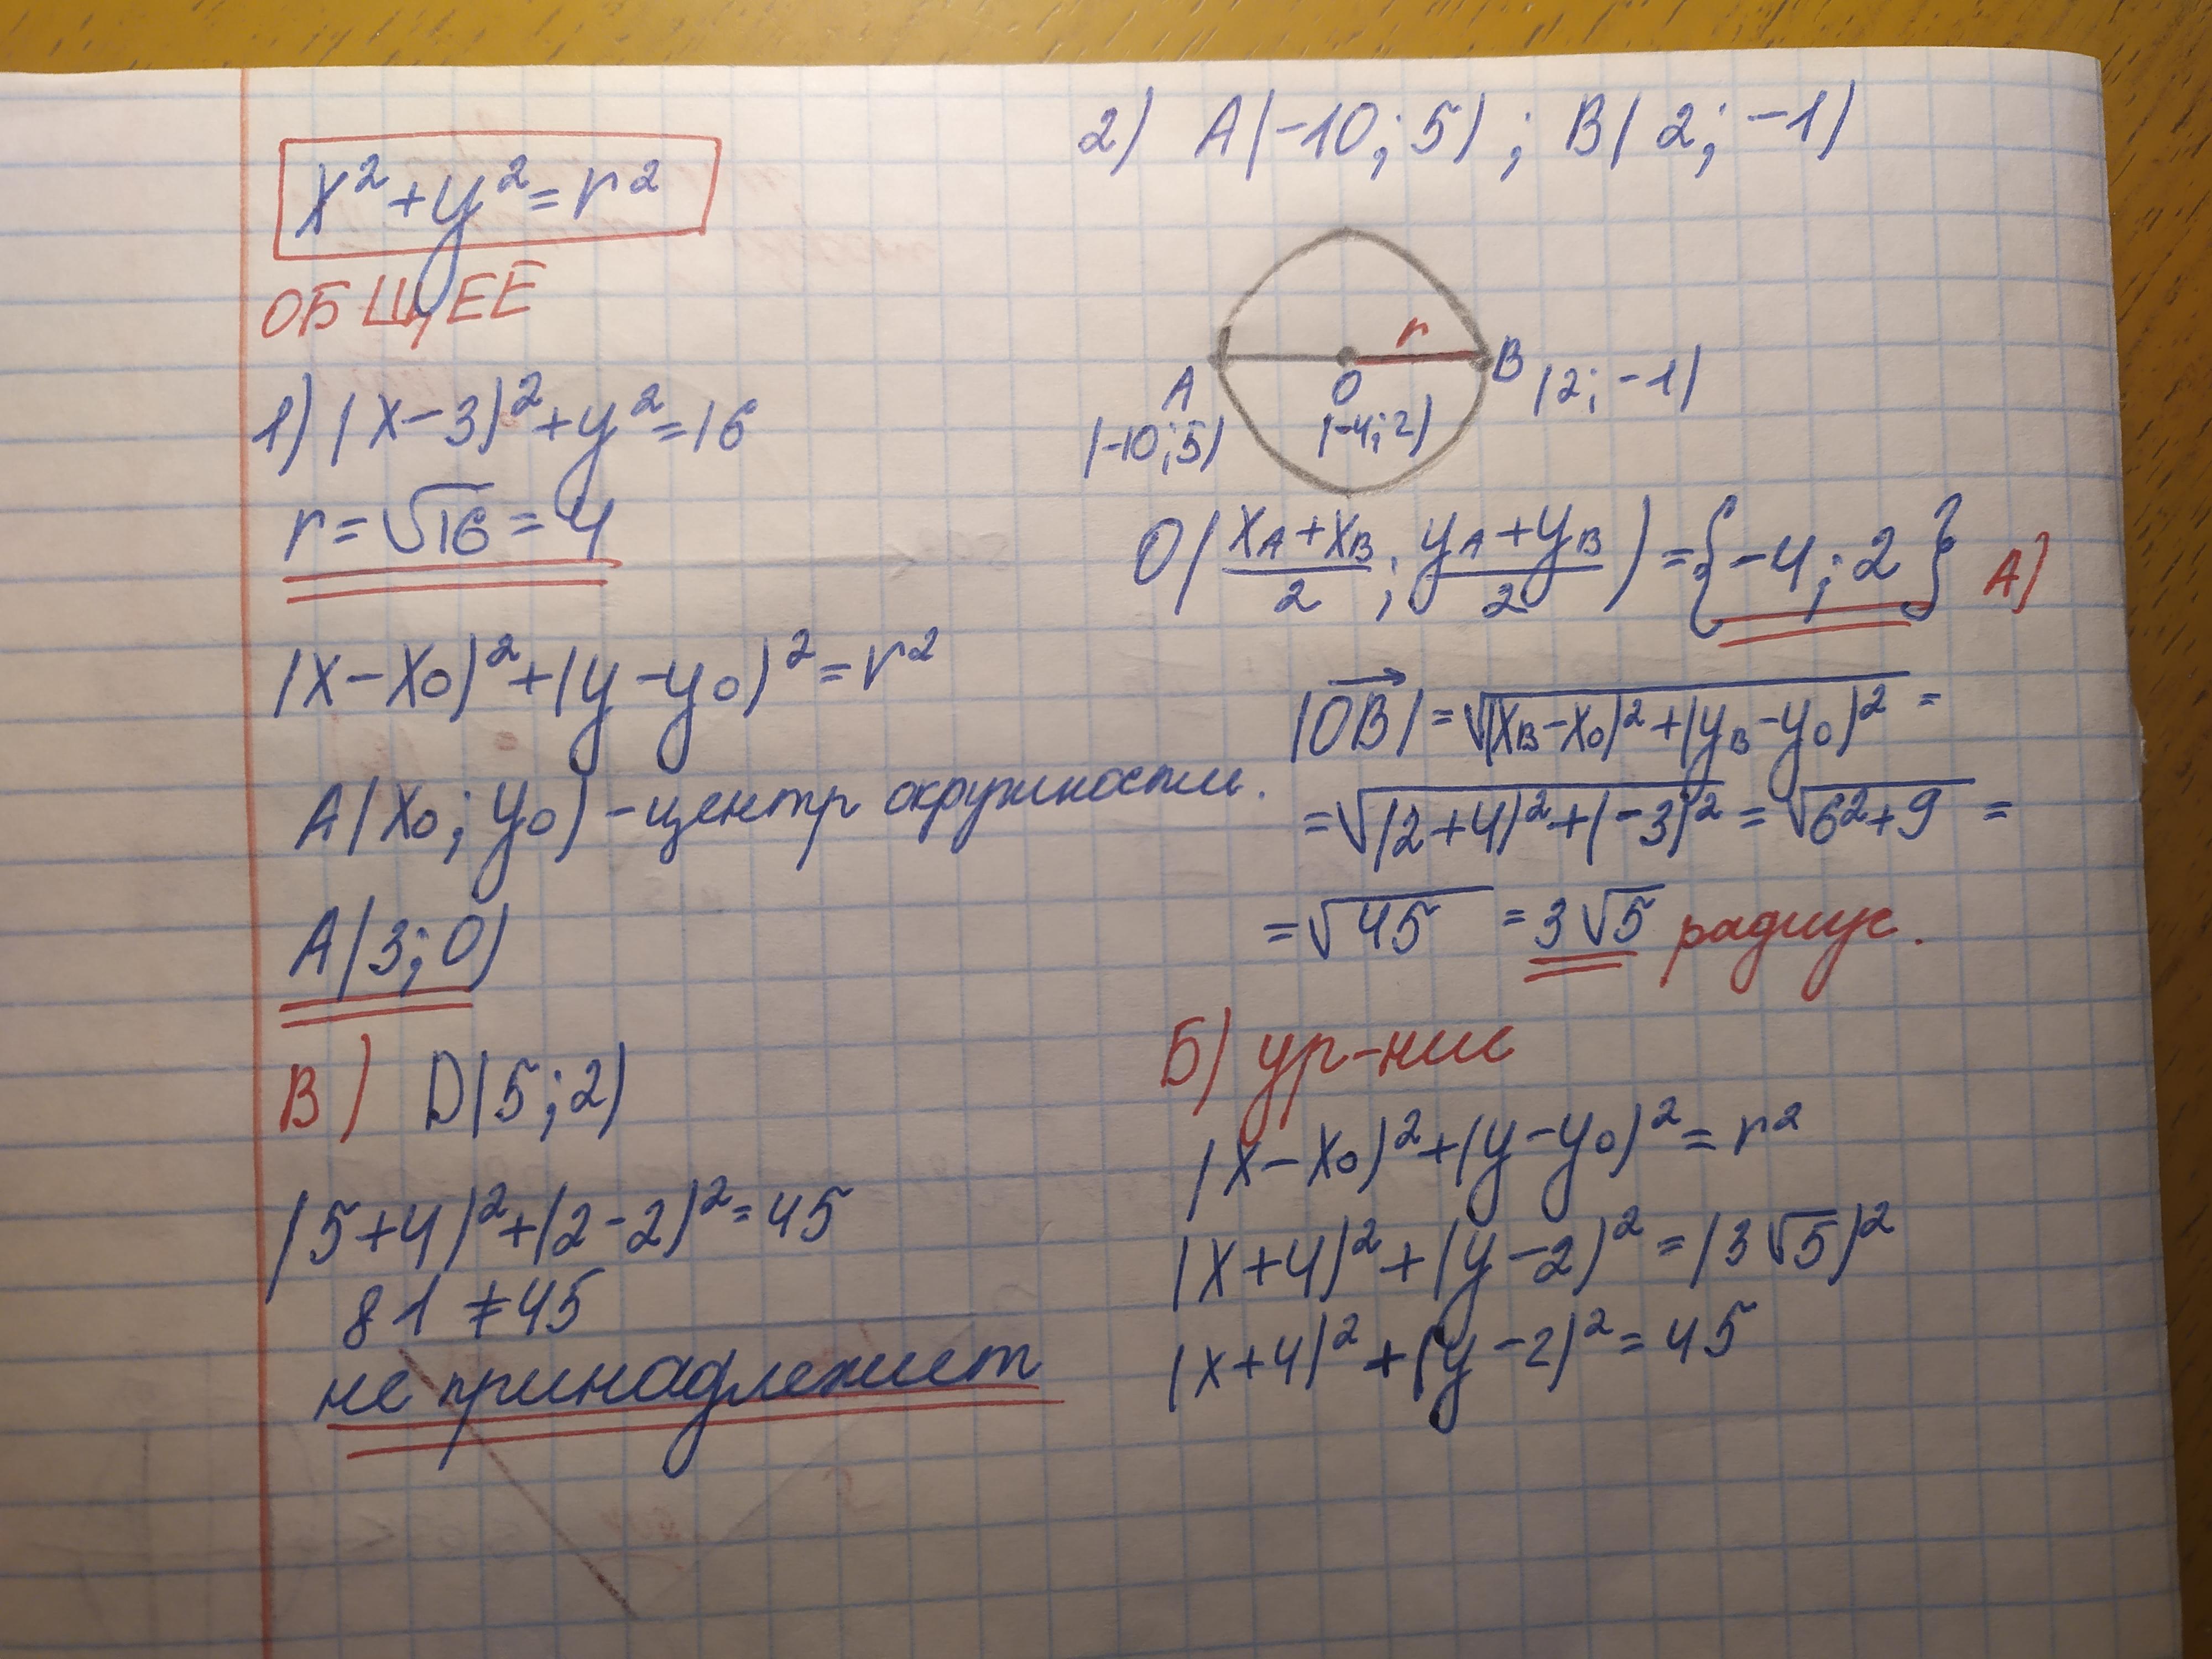 x² + y² = r²
ОБЩЕЕ
1) (x-3)² + y² = 16
r = √16 = 4
(x-x₀)² + (y-y₀)² = r²
A(x₀; y₀) - центр окружности.
A(3; 0)
В) D(5; 2)
(5+4)² + (2-2)² = 45
81 ≠ 45
не принадлежит
2) A(-10; 5) ; B(2; -1)
r
A
O
B (2; -1)
(-10; 5)
(-4; 2)
O((x_A + x_B)/2 ; (y_A + y_B)/2) = {-4; 2} А)
|OB→| = √((x_B - x₀)² + (y_B - y₀)²) =
= √((2+4)² + (-3)²) = √(6² + 9) =
= √45 = 3√5 радиус.
Б) ур-ние
(x-x₀)² + (y-y₀)² = r²
(x+4)² + (y-2)² = (3√5)²
(x+4)² + (y-2)² = 45